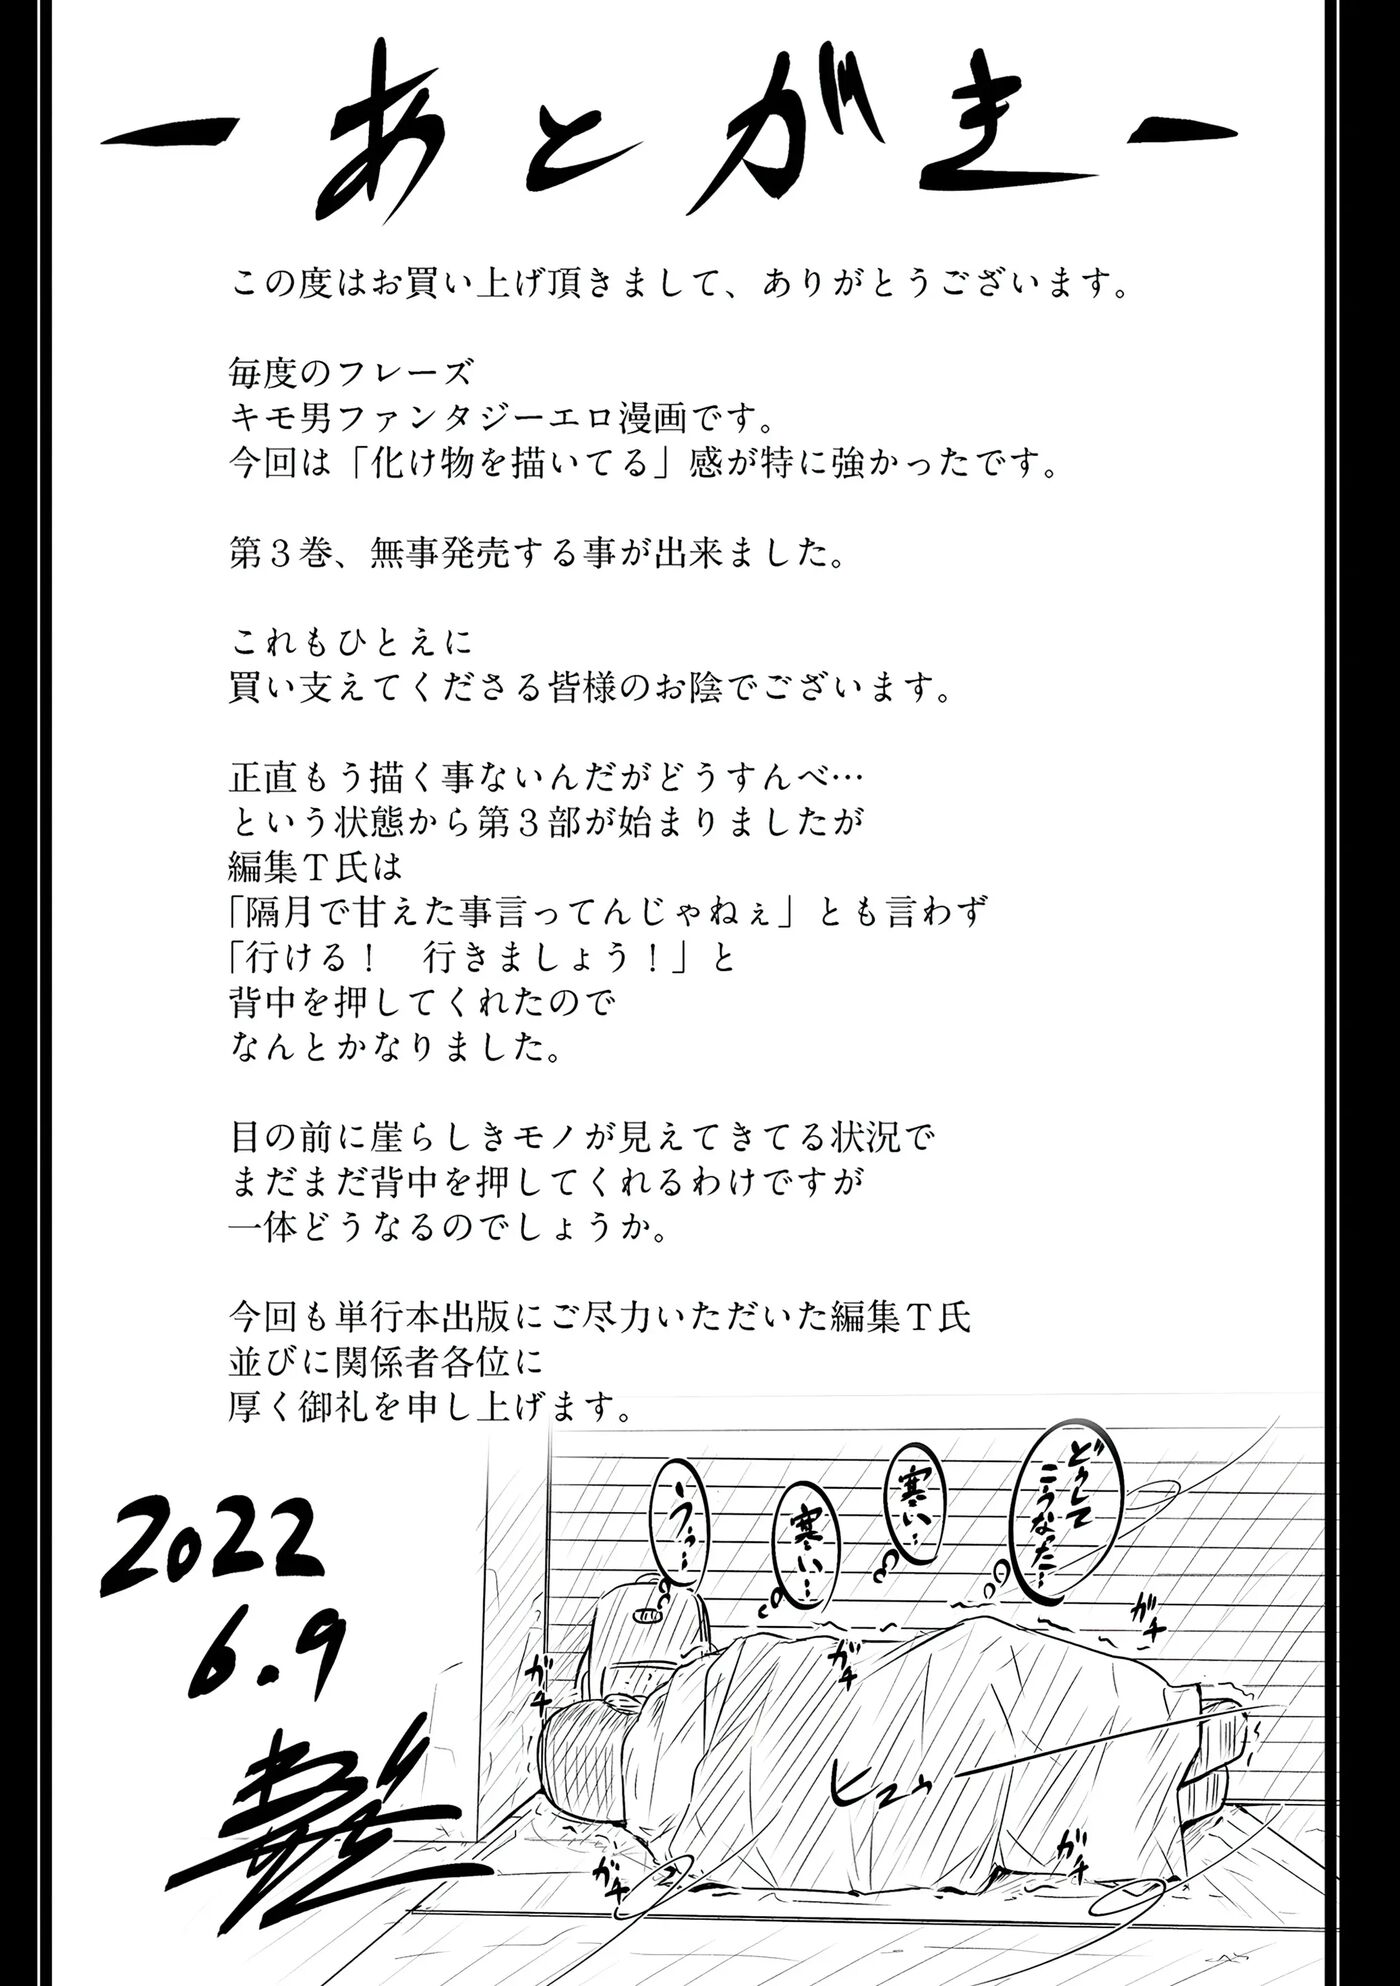 ーあとがきー
この度はお買い上げ頂きまして、ありがとうございます。
毎度のフレーズ
キモ男ファンタジーエロ漫画です。
今回は「化け物を描いてる」感が特に強かったです。
第３巻、無事発売する事が出来ました。
これもひとえに
買い支えてくださる皆様のお陰でございます。
正直もう描く事ないんだがどうすんべ…
という状態から第３部が始まりましたが
編集Ｔ氏は
「隔月で甘えた事言ってんじゃねぇ」とも言わず
「行ける！　行きましょう！」と
背中を押してくれたので
なんとかなりました。
目の前に崖らしきモノが見えてきてる状況で
まだまだ背中を押してくれるわけですが
一体どうなるのでしょうか。
今回も単行本出版にご尽力いただいた編集Ｔ氏
並びに関係者各位に
厚く御礼を申し上げます。
2022
6.9
どうして
こうなった…
寒い…
寒い…
うぅ…
ガチ
ガチ
ガチ
ヒュゥ
ガチ
ガチ